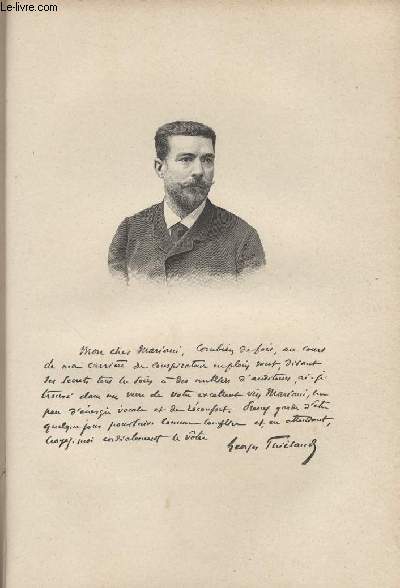 Le-livre.com
Mon cher Mariani, Combien de fois, au cours
de ma carrière de conspirateur en plein vent, disant
ses secrets tous les soirs à des milliers d'auditeurs, ai-je
trouvé dans un verre de votre excellent vin Mariani, un
peu d'énergie vocale et de réconfort. Prenez garde d'être
quelque jour poursuivi comme complice et en attendant,
croyez-moi cordialement le vôtre
Georges Thiébaud